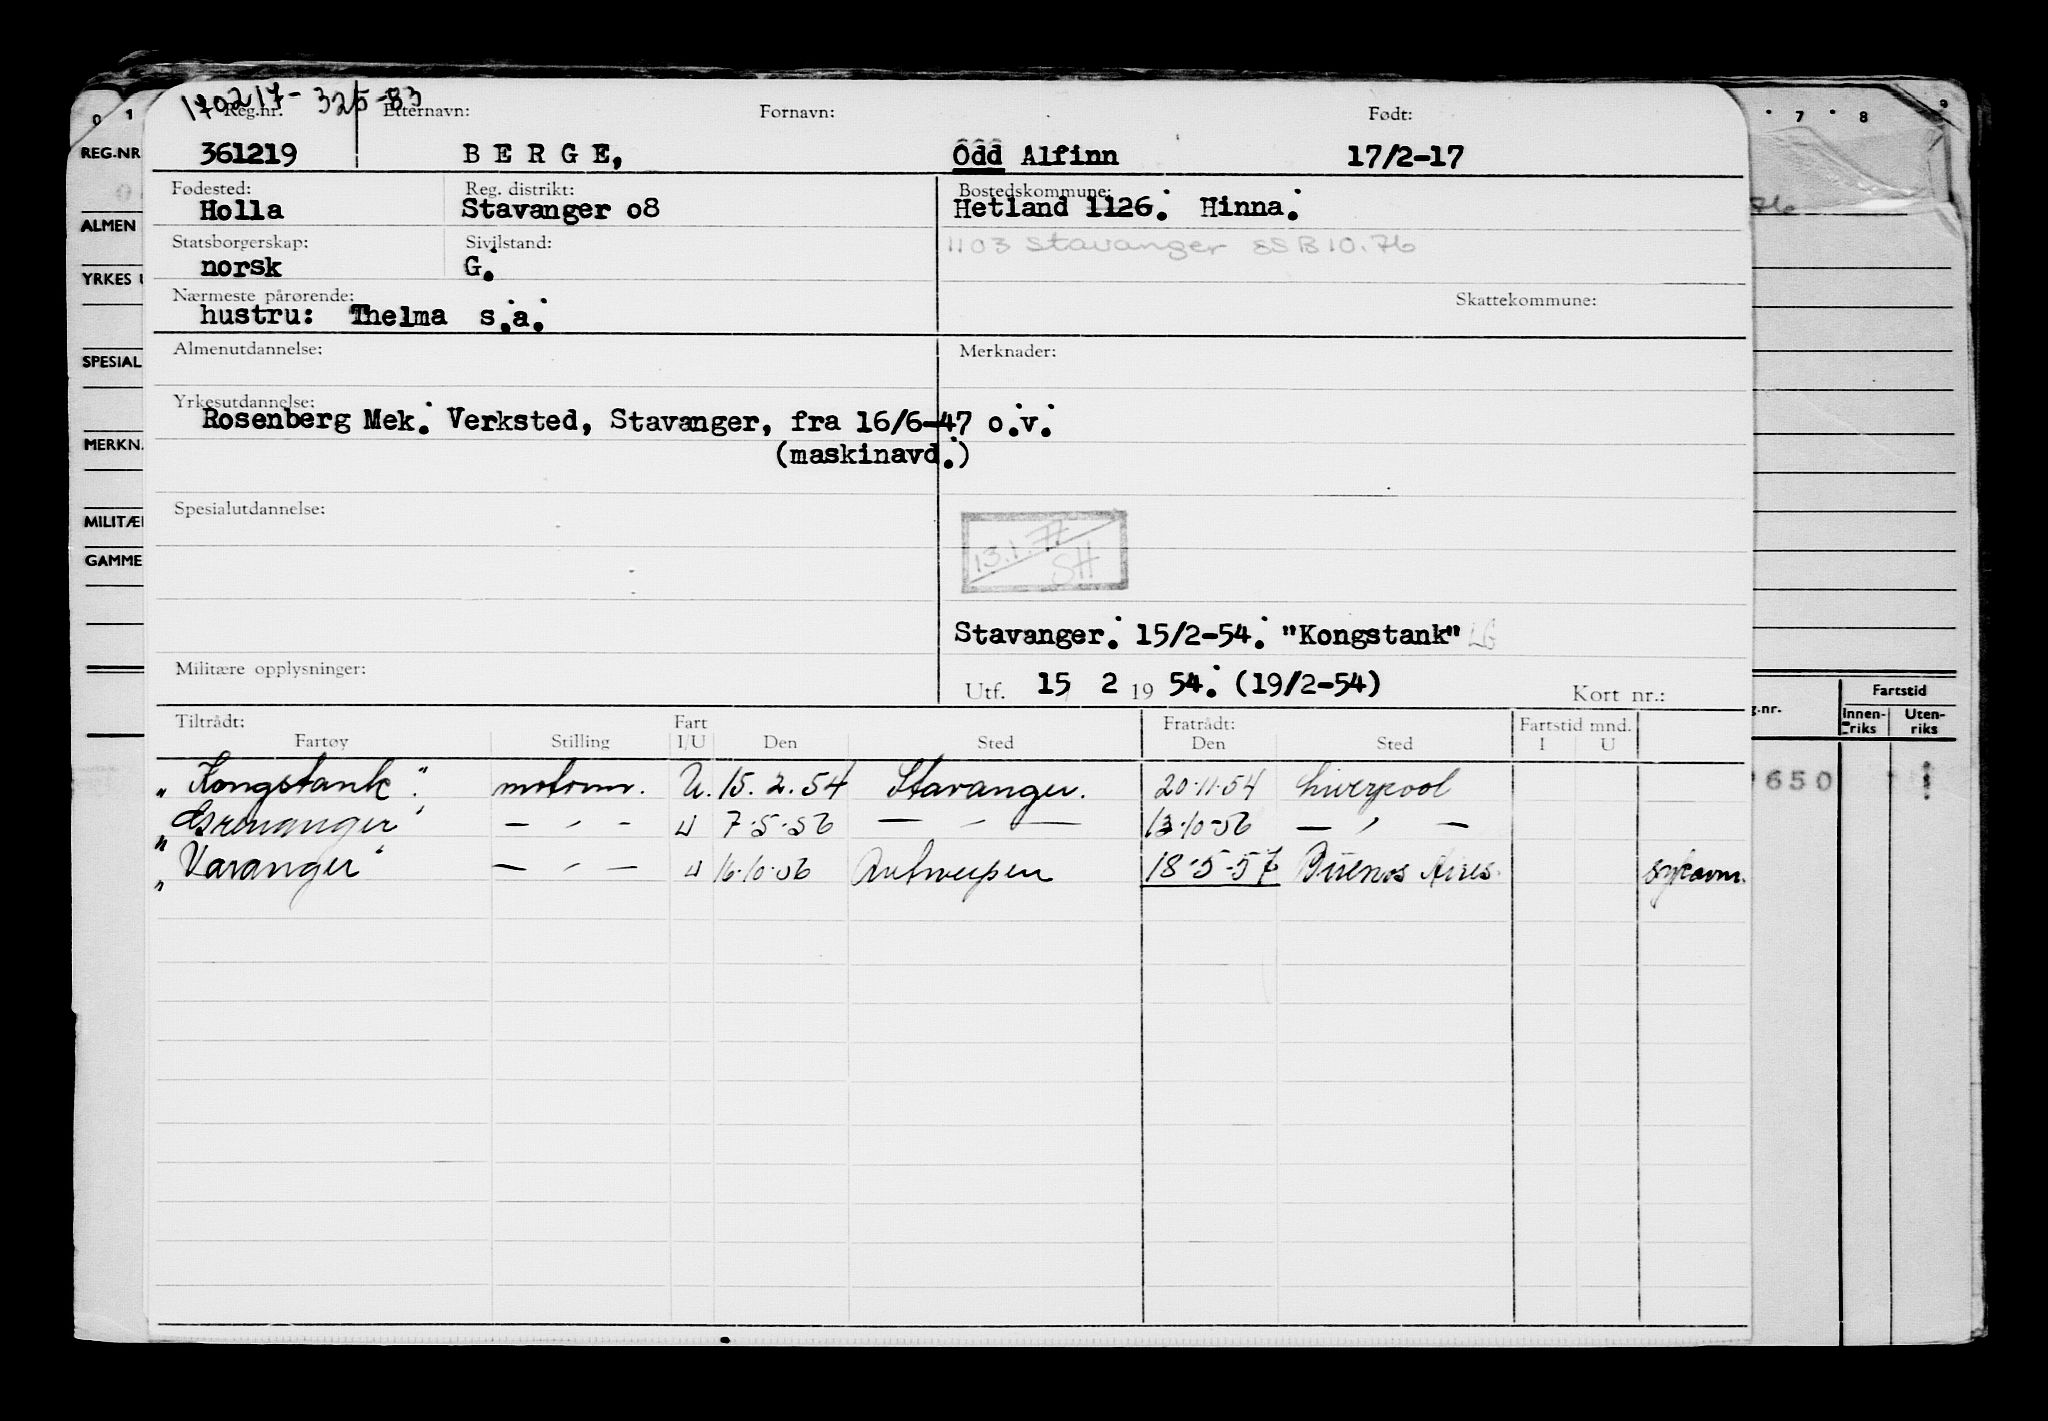 170217-325-83
Reg.nr. Etternavn: Fornavn: Født:
361219 BERGE, Odd Alfinn 17/2-17
Fødested: Reg. distrikt: Bostedskommune:
Holla Stavanger o8 Hetland 1126. Hinna.
Statsborgerskap: Sivilstand: 1103 Stavanger SSB 10.76
norsk G.
Nærmeste pårørende: Skattekommune:
hustru: Thelma s.a.
Almenutdannelse: Merknader:
Yrkesutdannelse:
Rosenberg Mek. Verksted, Stavanger, fra 16/6-47 o.v.
(maskinavd.)
Spesialutdannelse:
13.1.77
SH
Stavanger. 15/2-54. "Kongstank" LG
Militære opplysninger:
Utf. 15 2 19 54. (19/2-54) Kort nr.:
Tiltrådt: Fart Fratrådt: Fartstid mnd.
Fartøy Stilling I/U Den Sted Den Sted I U
"Kongstank". motorm. U. 15.2.54 Stavanger. 20.11.54 Liverpool
" — " — U 7-5-56 — " — 13-10-56 — " —
"Varanger" — " — U 16-10-56 Antwerpen 18-5-57 Buenos Aires. sykavm.
0 1
REG.NR
ALMEN
YRKES U
SPESIAL
MERKN.
MILITÆR
GAMME
7 8 9
76
g.nr. Fartstid
Innen-riks Uten-riks
650